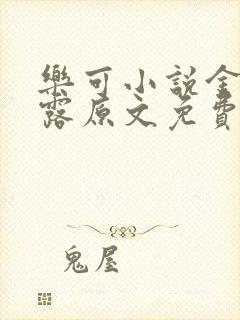 樂可小說金
露原文免費
鬼屋